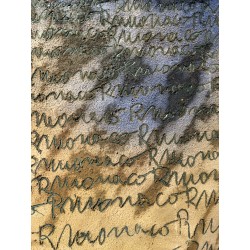 Rmonaco R
monaco Rmonaco
Rmonaco R
monaco Rmonaco
Rmonaco Rmonaco
monaco Rmonaco
Rmonaco Rmonac
monaco Rmonaco
Rmonaco Rmona
Rmonaco Rmo
Rmonaco R